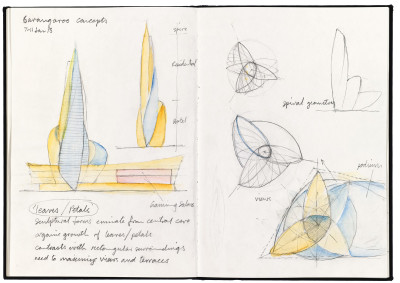 Barangaroo concepts
7th Jan 13
spire
residential
hotel
Gaming Salons
leaves / Petals
sculptural forms emanate from central core
organic growth of leaves / petals
contrasts with rectangular surroundings
need to maximising views and terraces
spiral geometry
views
podium